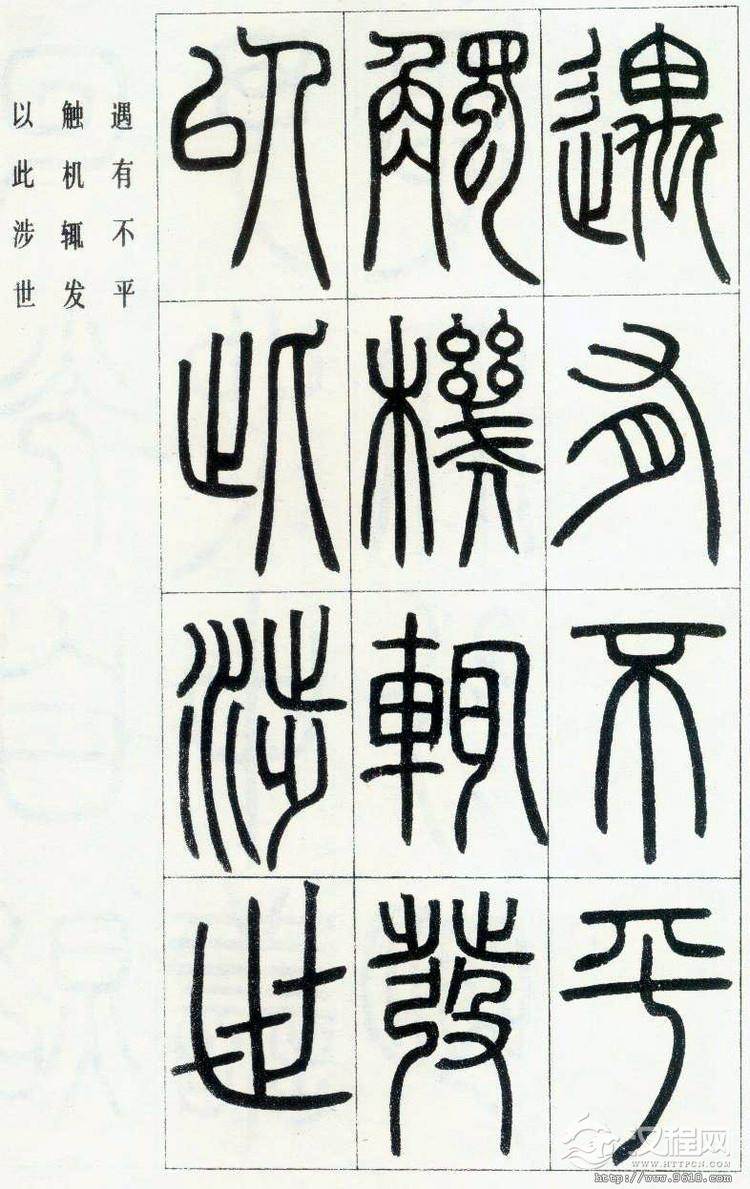 遇有不平
觸機輒發
以此涉世
遇有不平
触机辄发
以此涉世
汉程网
WWW.HTTPCN.COM
http://www.9610.com